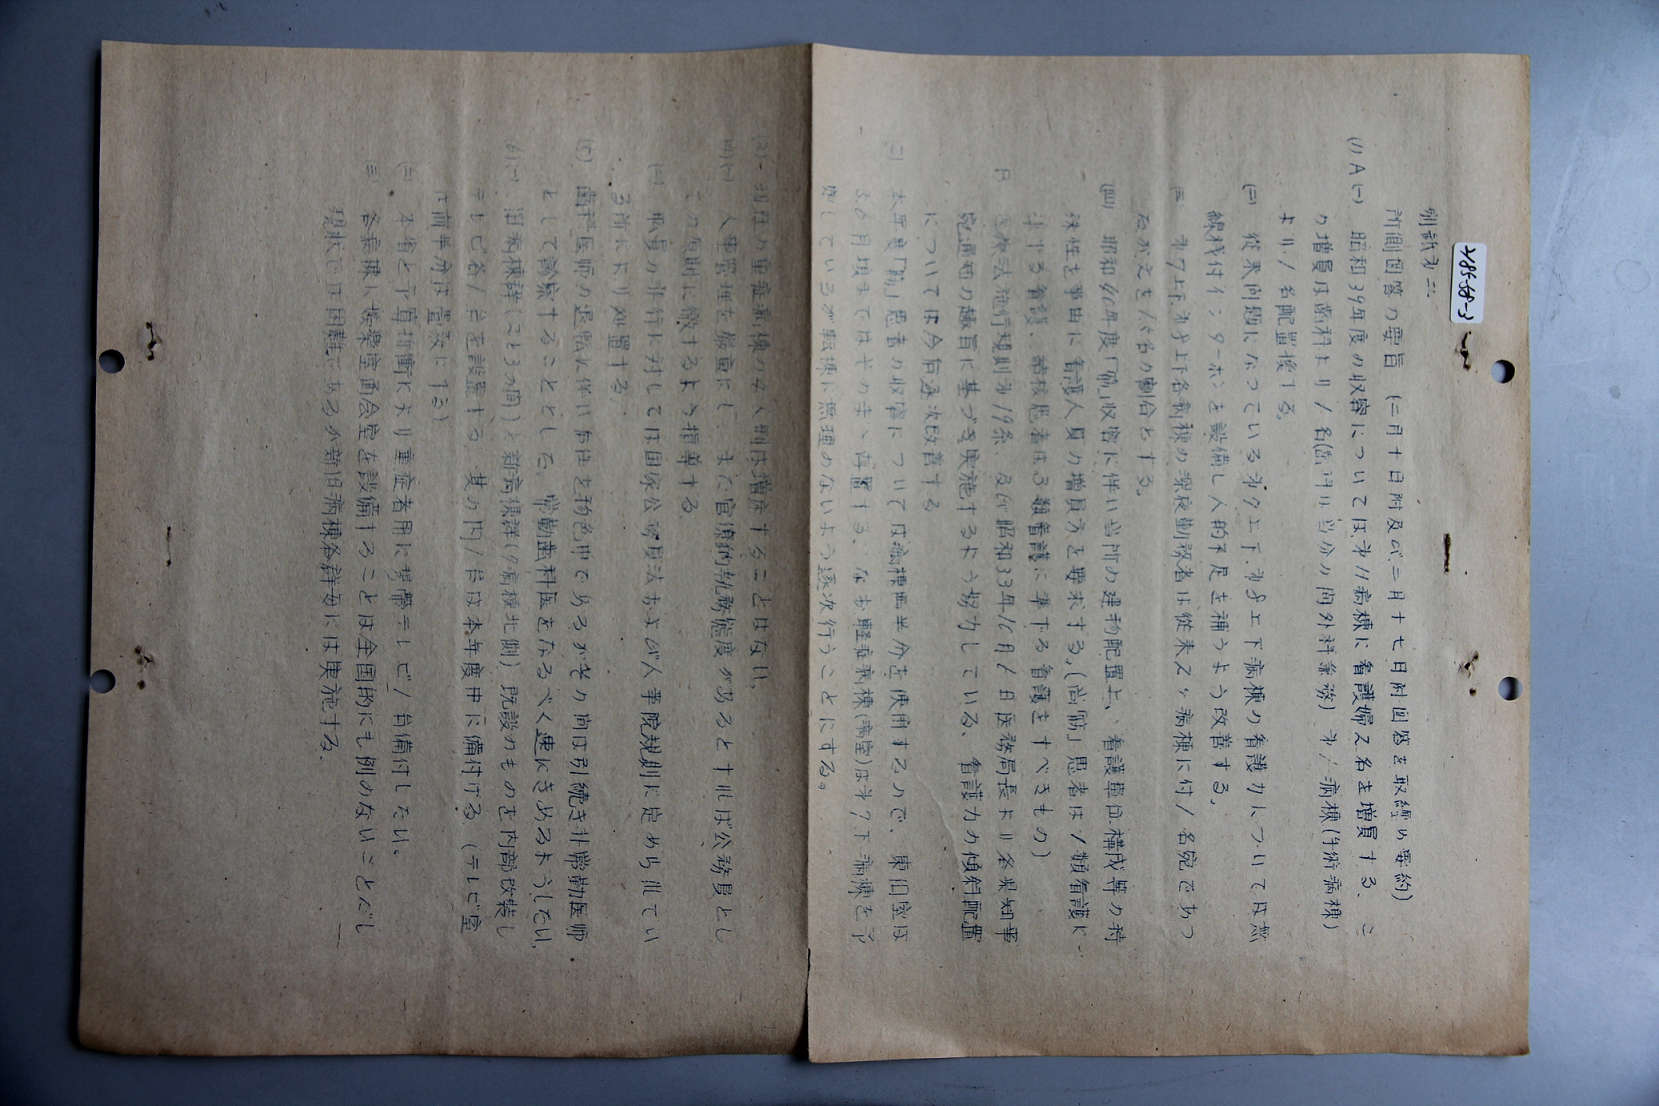 2185-58-3
別紙第二
所側回答の要旨 (二月十日附及び二月十七日附回答を取纏め要約)
(1) A (一) 昭和39年度の収容については、第11病棟に看護婦2名を増員する、こ
の増員は歯科より1名(当分の間外科兼務)第1病棟(手術病棟)
より1名配置換する。
(二) 従来問題になっている第7上下、第8上下病棟の看護力については無
線機付インターホンを設備し人的不足を補うよう改善する。
(三) 第7上下、第8上下各病棟の深夜勤務者は従来2ヶ病棟に付1名宛であっ
(四) 昭和40年度「筋」収容に伴い当所の建物配置上、看護単位構成等の特
殊性を事由に看護人員の増員方を要求する。(尚「筋」患者は1類看護に
準ずる看護、結核患者は3類看護に準ずる看護をすべきもの)
B 医療法施行規則第19条、及び昭和33年10月1日医務局長より各県知事
宛通知の趣旨に基づき実施するよう努力している、看護力の傾斜配置
については今后逐次改善する
本年度「筋」患者の収容については病棟西半分を使用するので、東旧室は
3ヶ月頃まではそのまゝ存置する、なお軽症病棟(病室)は第7下病棟を予
定しているが転棟に無理のないよう逐次行うことにする。
(2) 現在の重症病棟の女人則は増床することはない。
(4) (一) 人事管理を厳重にし、また官僚的執務態度があるとすれば公務員とし
ての原則に徹するよう指導する。
(二) 職員の非行に対しては国家公務員法および人事院規則に定められてい
る所により処置する。
(5) 歯科医師の退職に伴い后任を物色中であるがその間は引続き非常勤医師
として診療することとした、常勤歯科医をなるべく速にきめるようしたい。
(6) (一) 旧病棟群(2と3の間)と新病棟群(9病棟北側)既設のものを内部改装し
テレビ各1台を設置する、其の内1台は本年度中に備付ける、(テレビ室
は前半分は畳敷にする)
(二) 本省と予算折衝により重症者用に携帯テレビ1台備付したい。
(三) 各病棟に娯楽室面会室を設備することは全国的にも例のないことだし
現状では困難であるが新旧病棟各群毎には実施する。